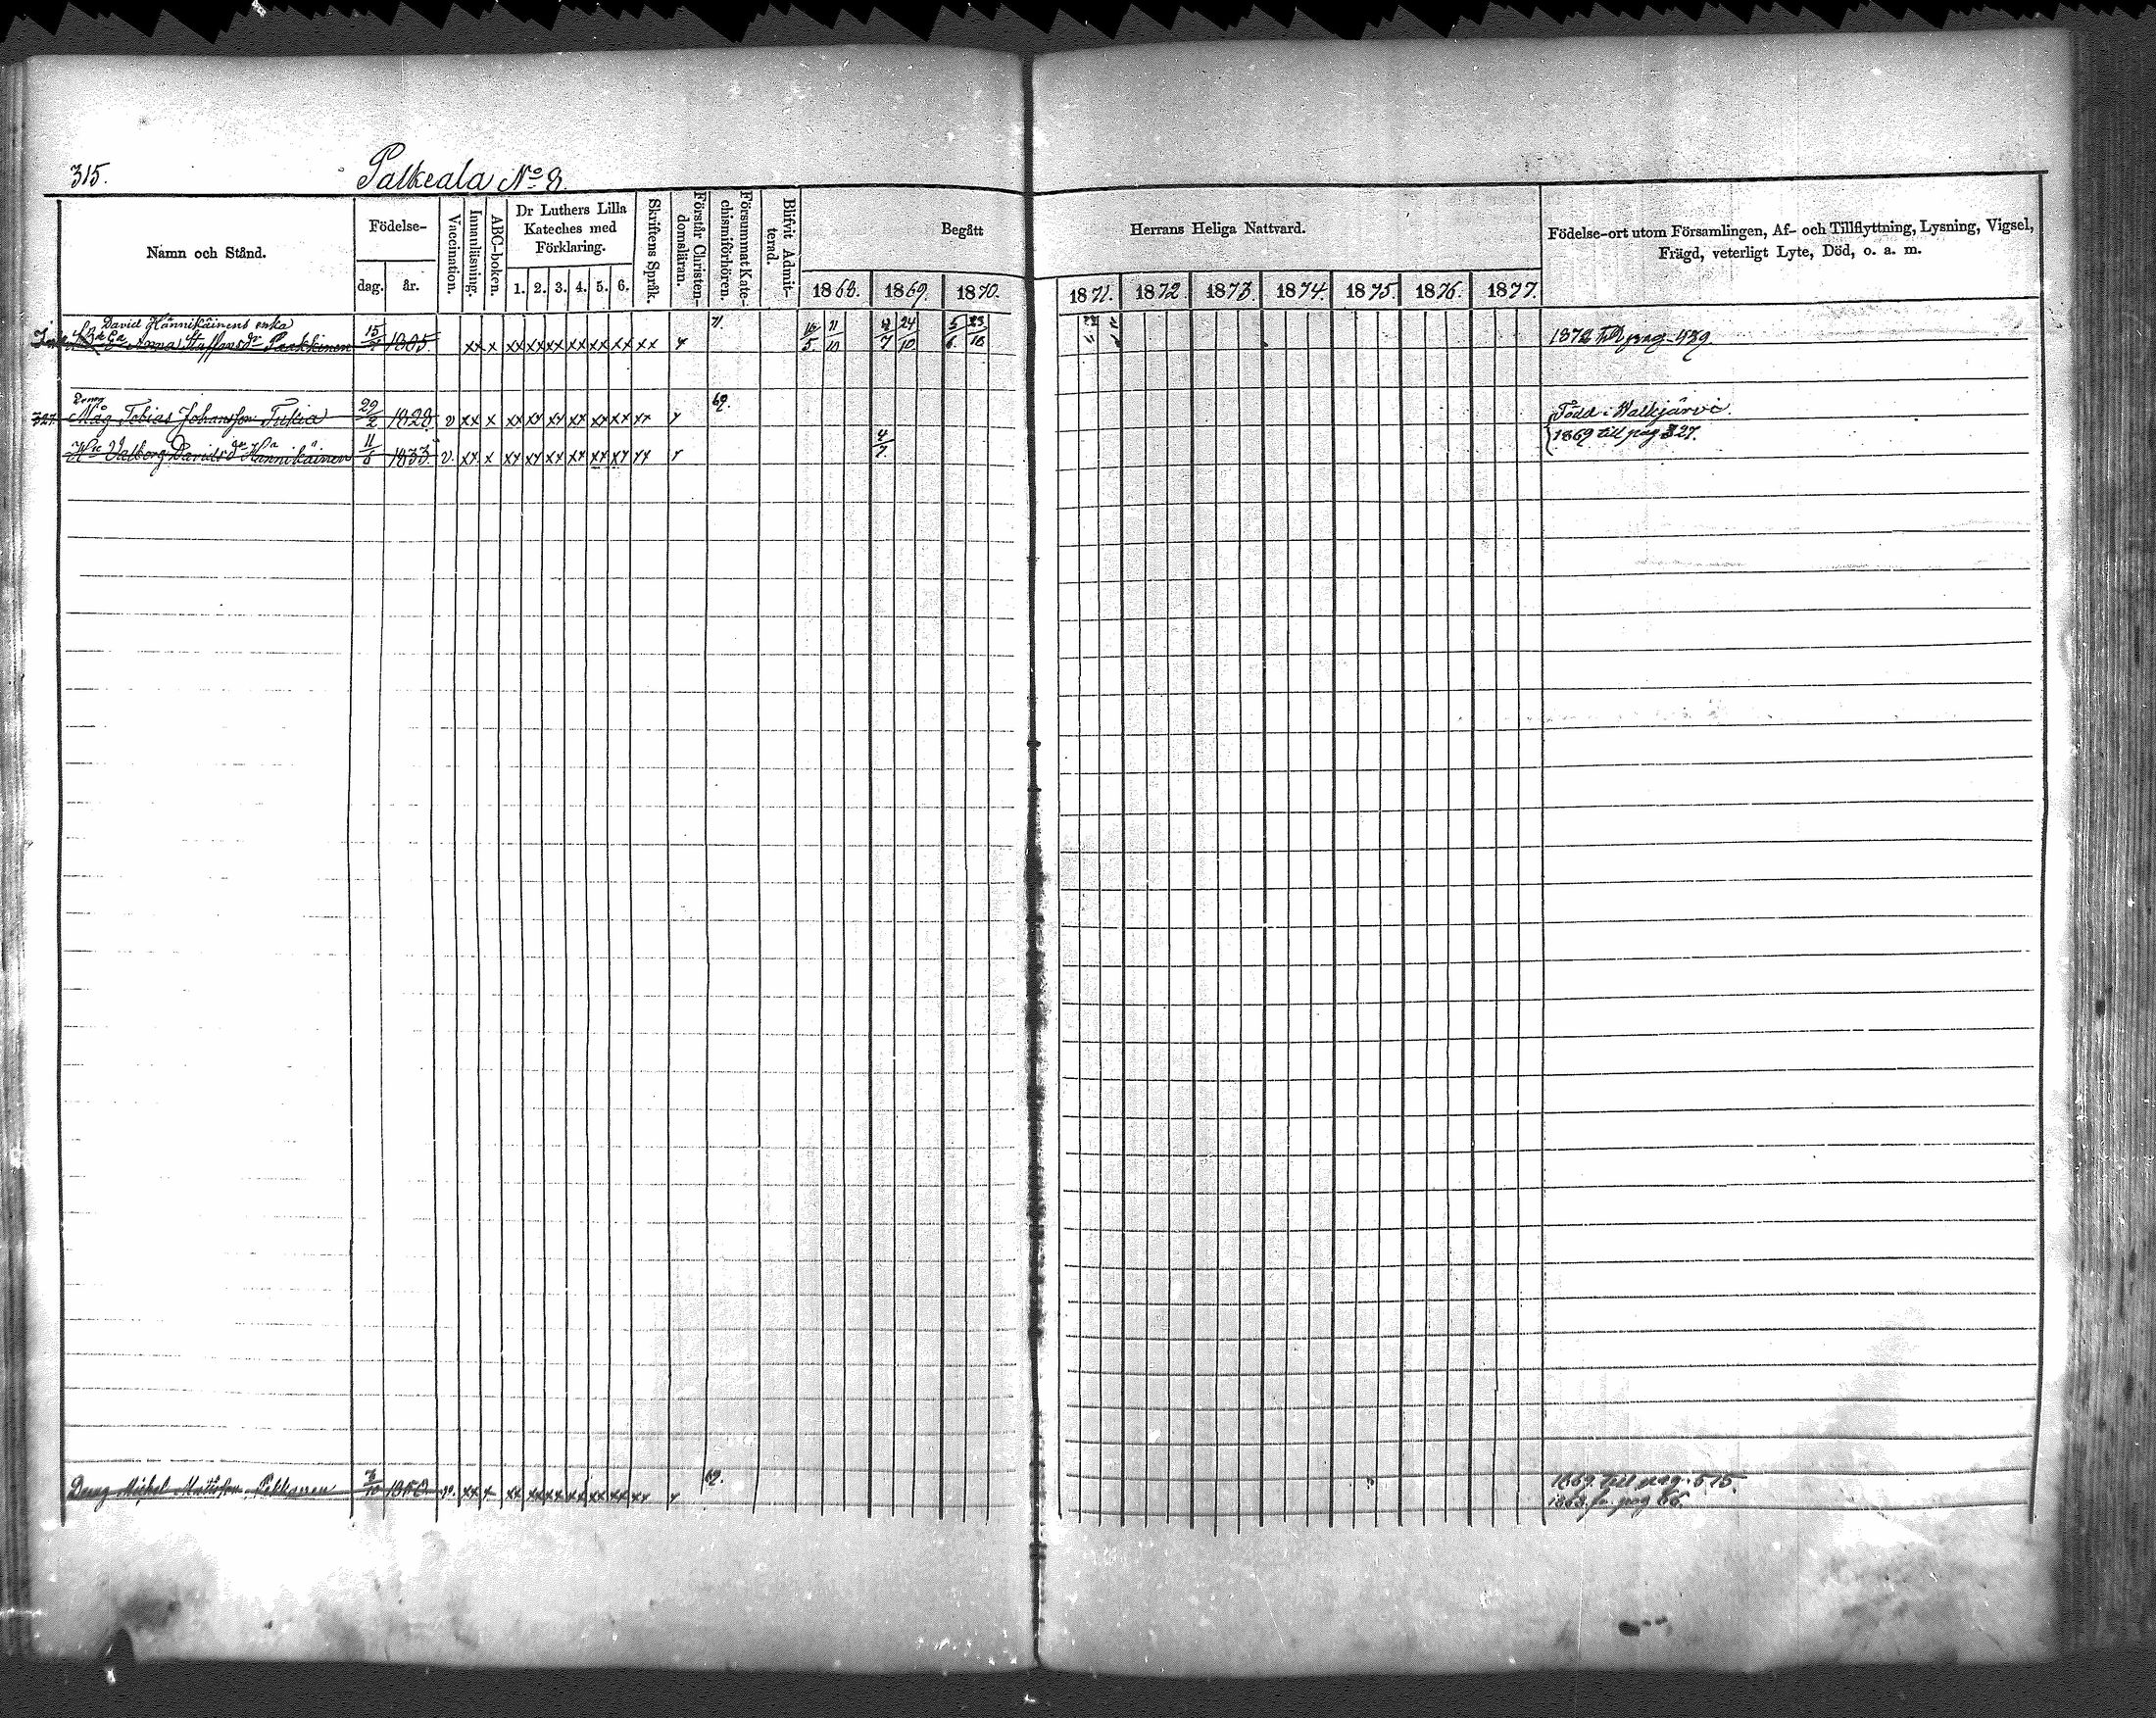 315.
Palkeala No 8.
Namn och Stånd.
Födelse-
dag.
år.
Vaccination.
Innanläsning.
ABC-boken.
Dr Luthers Lilla
Kateches med
Förklaring.
1. 2. 3. 4. 5. 6.
Skriftens Språk.
Förstår Christen-
domsläran.
Försummat Kate-
chismiförhören.
Blifvit Admit-
terad.
Begått
Herrans Heliga Nattvard.
1868. 1869. 1870. 1871. 1872. 1873. 1874. 1875. 1876. 1877.
Födelse-ort utom Församlingen, Af- och Tillflyttning, Lysning, Vigsel,
Frägd, veterligt Lyte, Död, o. a. m.
David Hännikäinens enka
Anna Staffansdr Paakkinen 1805. xx x xx xx xx xx xx xx xx x 71. 10/5 11/10 4/7 24/10 5/6 23/10 pag. 439
327 Måg Tobias Johansson Tukia 29/2 1828 v xx x xx xx xx xx xx xx xx x 69. Född i Walkjärvi.
1869 till pag 327.
Valborg Davidsdr Hännikäinen 11/6 1833. v. xx x xx xx xx xx xx xx xx x 4/7
Dreng Michel Mattsson Pekkanen v. xx x xx xx xx xx xx xx xx x 69. 1869. till pag. 515.
1868. fr. pag 66.